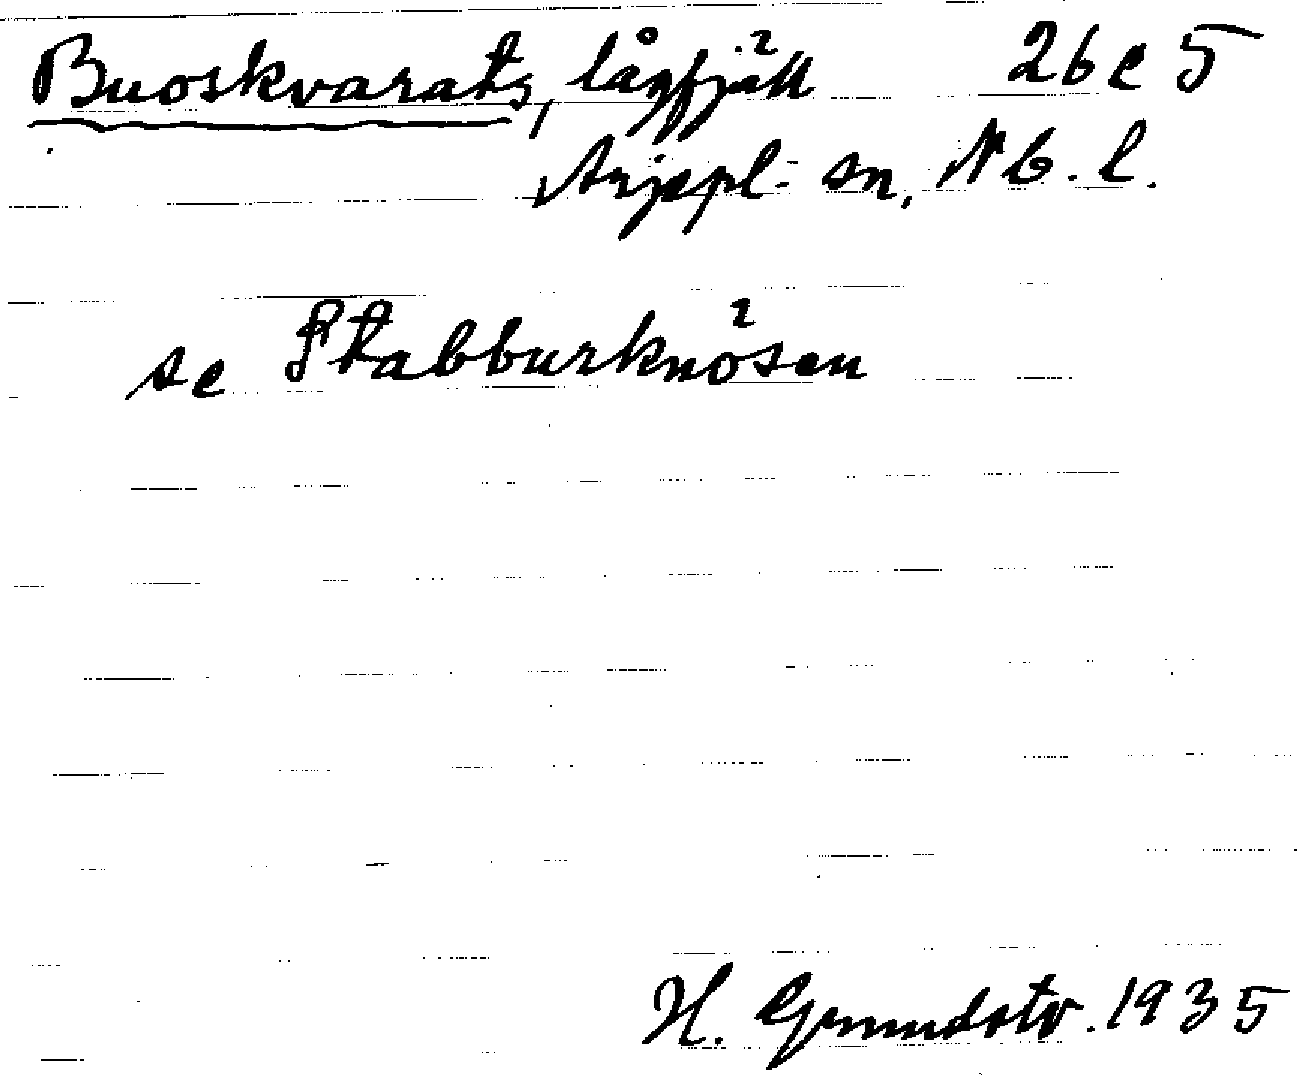 Buoskvarats, lågfjäll 26 e 5
Arjepl. sn, Nb. l.
se Stabburknösen
H. Grundstr. 1935